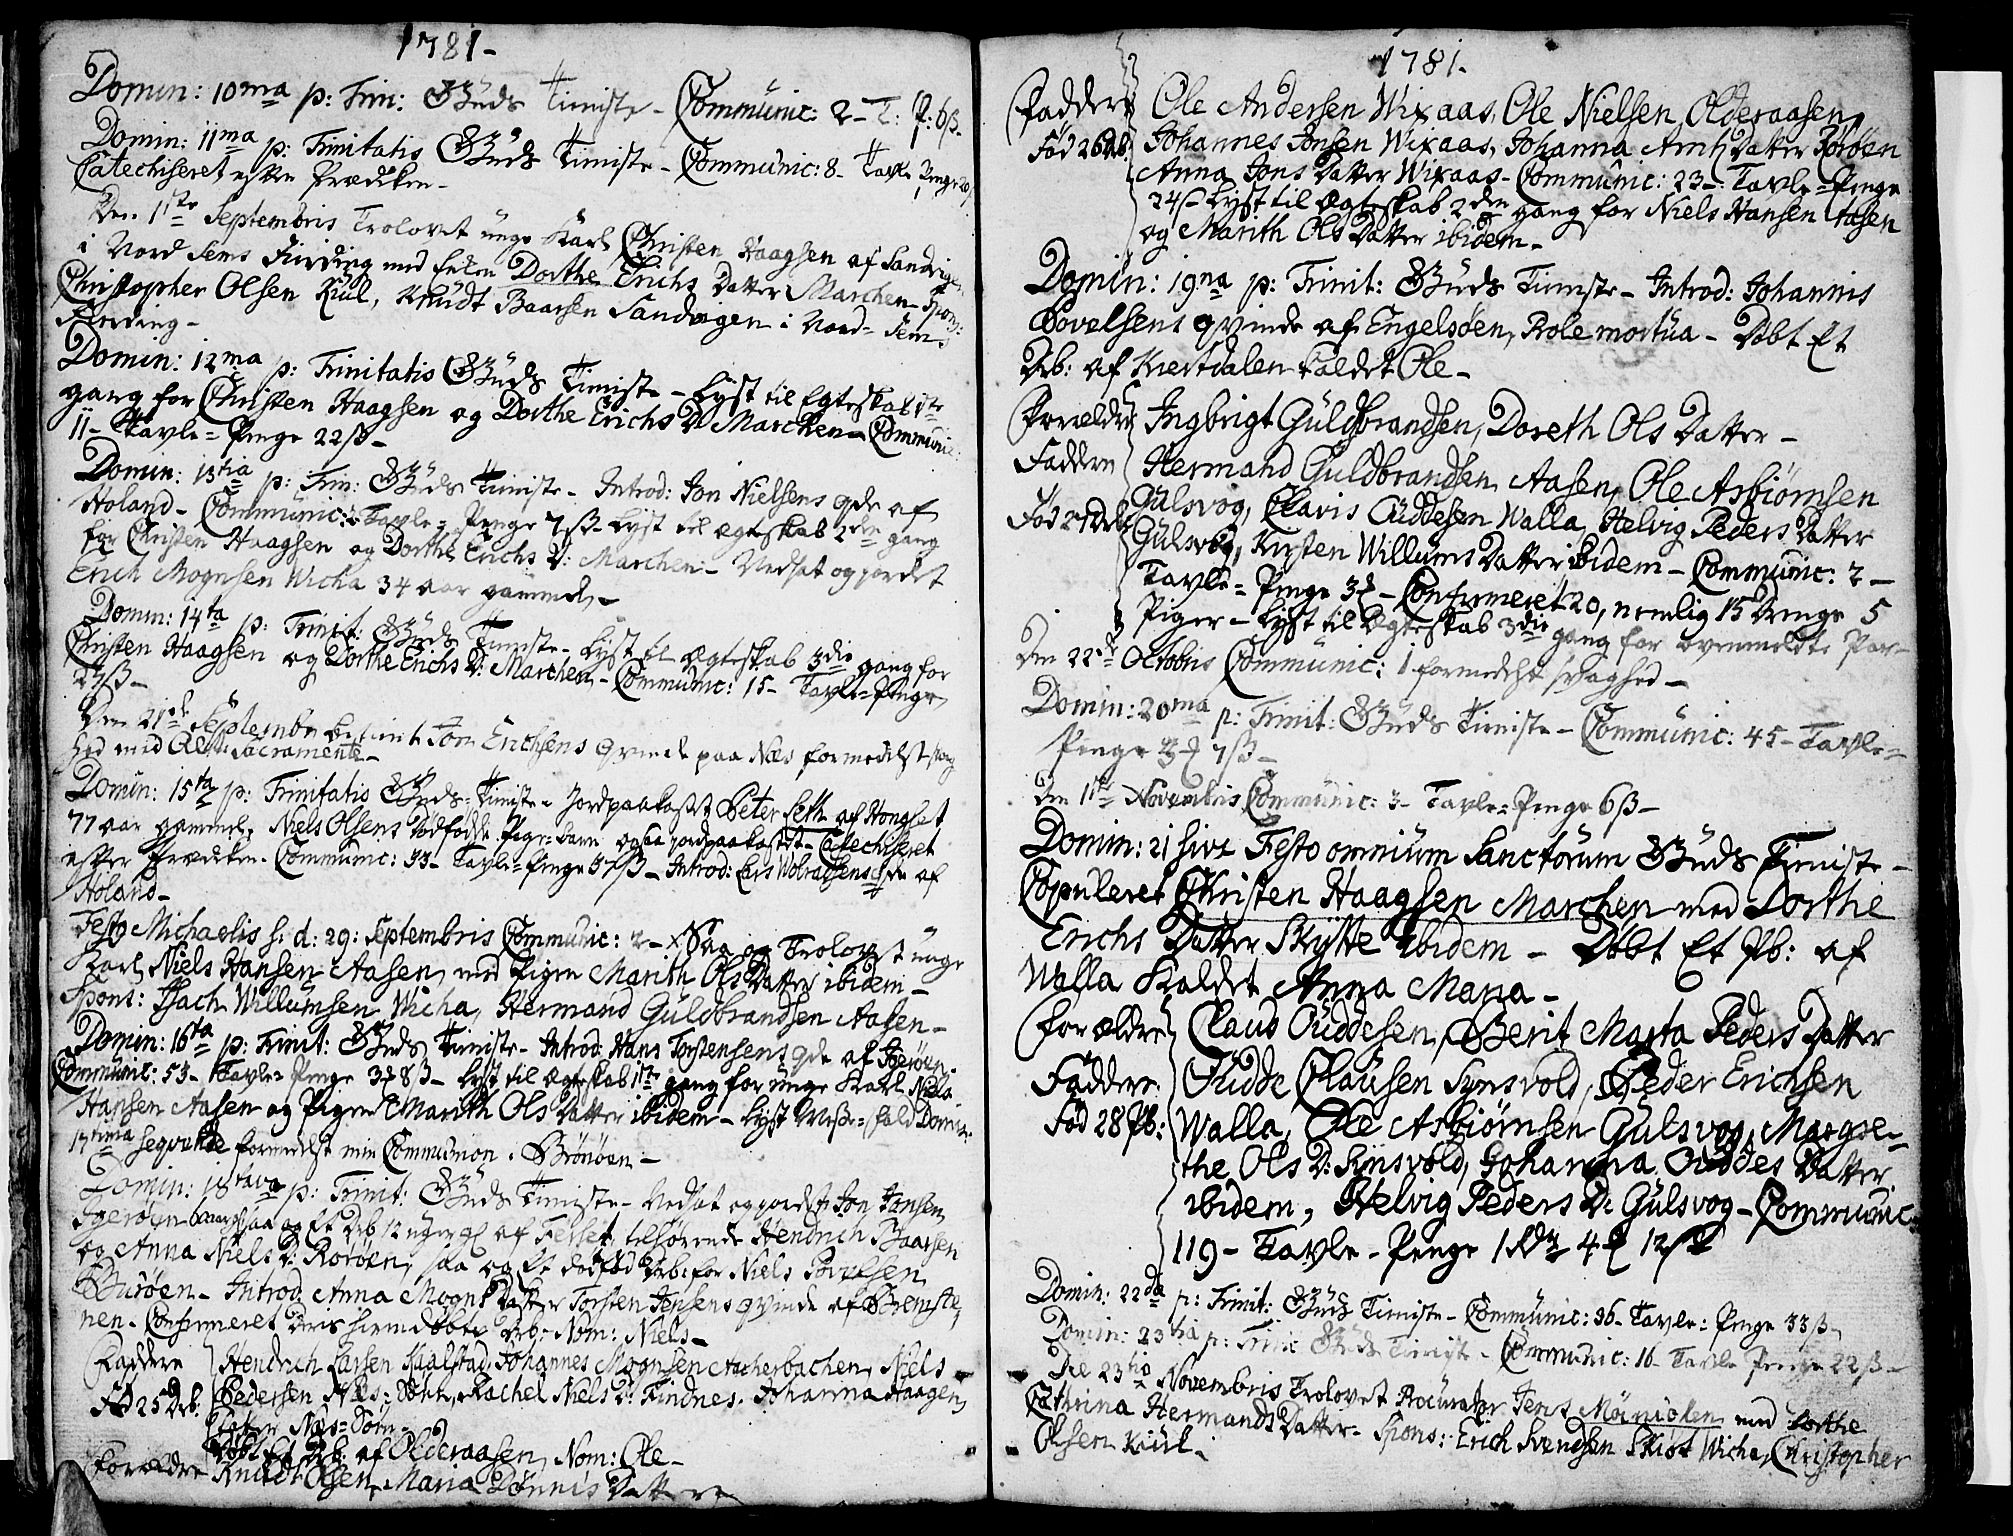 1781-
Domin: 10ma p: Trin: Guds Tieniste - Communic: 2 - T: P: 6ß-
Domin: 11ma p: Trinitatis Guds Tieniste - Communic: 8- Tavle Penge
Catechiseret efter Prædiken-
Den 11te Septembris Trolovet unge Karl Christen Haagsen af Sandvigen
i Nord Sems Fierding med Enken Dorthe Erichs Datter Marchen - Spons:
Christopher Olsen Kiul, Knudt Baarsen Sandvigen i Nord- Sems
Fierding-
Domin: 12ma p: Trinitatis Guds Tieniste - Lyst til Egteskab 1te
gang for Christen Haagsen og Dorthe Erichs D: Marchen - Communic:
11- Tavle- Penge 22ß-
Domin: 13tia p: Trin: Guds Tieniste - Introd: Jon Nielsens qde af
Holand - Communic: Tavle- Penge 7ß- Lyst til Egteskab 2den gang
for Christen Haagsen og Dorthe Erichs D: Marchen - Nedsat og jordet
Erich Mognsen Wicha 34 aar gammel-
Domin: 14ta p: Trinit: Guds Tieniste - Lyst til Egteskab 3die gang for
Christen Haagsen og Dorthe Erichs D: Marchen - Communic: 15 - Tavle-Penge
27ß-
Den 21de Septembr: Tom Erichsens Qvinde paa Næs formedelst svag
hed med Alt: Sacramente-
Domin: 15ta p: Trinitatis Guds-Tieniste - Jordpaakastet Peter Seth af Hongset
77 aar gammel, Niels Olsens dødfødde Pige-barn ogsaa jordpaakastet - Catechiseret
efter Prædiken - Communic: 33 - Tavle-Penge 37ß - Introd: Lars Wolratsens qde af
Holand-
Festo Michaelis s: d: 29: Septembris Communic: 2 - Saa og Trolovet unge
Karl Niels Hansen Aasen, med Pigen Marith Ols Datter ibidem -
Spons: Isach Willumsen Wicha, Hermand Guldbrandsen Aasen -
Domin: 16ta p: Trinit: Guds Tieniste - Introd: Hans Torstensens qde af Igerøen -
Communic: 53 - Tavle-Penge 3 8ß - Lyst til Egteskab 1te gang for unge Karl Niels
Hansen Aasen og Pigen Marith Ols Datter ibidem - Lyst Messe-fald Domin:
17tima seqvente formedelst min Communion i Brønøen -
Domin: 18tava p: Trinit: Guds Tieniste - Nedsat og jordet Jon Jansen
Igerøen saa og Et Drb 12 uger gl af Fesset tilhørende Hendrich Baarsen
og Anna Niels D: Rorøen, saa og Et dødfød Drb: for Niels Povelsen
Burøen - Introd: Anna Mogns Datter Torsten Jensens qvinde af Tremste-
nen - Confirmeret hiemdøbte Drb: Nom: Niels -
Faddere Hendrich Larsen Kaalstad, Johannes Mognsen Acherbachen, Niels
Fød 25 Drb: Pedersen Næs-Søm, Rachel Niels D: Tindnes, Johanna Haagens
Datter Næs-Søm-
Døbt Et Drb: af Olderaasen, Nom: Ole-
Forældre Knudt Olsen, Maria Dønnis Datter
1781-
Faddere Ole Andersen Wixaas, Ole Nielsen Olderaasen,
Fød 26 Drb: Johannes Jonsen Wixaas, Johanna Arnts Datter Rorøen
Anna Jons Datter Wixaas - Communic: 23 - Tavle-Penge
24ß - Lyst til Egteskab 2den gang for Niels Hansen Aasen
og Marith Ols Datter ibidem-
Domin: 19na p: Trinit: Guds Tieniste - Introd: Johannis
Povelsens qvinde af Engelsøen, Prole mortua - Døbt Et
Drb: af Kiertdalen kaldet Ole-
Forældre Ingbrigt Guldbrandsen, Doreth Ols Datter -
Faddere Hermand Guldbrandsen Aasen, Ole Asbiørnsen
Fød 27 Drb: Gulsvog, Clavis Ouddesen Walla, Helvig Peders Datter
Gulsvog, Kirsten Willums Datter ibidem - Communic: 2 -
Tavle-Penge 3 - Confirmeret 20, nemlig 15 Drenge 5
Piger - Lyst til Egteskab 3die gang for ovenmeldte Par-
Den 22de Octobris Communic: 1 formedelst svaghed-
Domin: 20ma p: Trinit: Guds Tieniste - Communic: 45 - Tavle-
Penge 3 7ß-
Den 1te Novembris Communic: 3 - Tavle-Penge 6ß-
Domin: 21 sive Festo omnium Sanctorum Guds Tieniste -
Copuleret Christen Haagsen Marchen med Dorthe
Erichs Datter Skytte ibidem - Døbt Et Pb: af
Walla kaldet Anna Maria -
Forældre Claus Ouddesen, Berit Marta Peders Datter
Faddere Oudde Clausen Synsvold, Peder Erichsen
Fød 28 Pb: Walla, Ole Asbiørnsen Gulsvog, Margre-
the Ols D: Synsvold, Johanna Ouddes Datter
ibidem, Helvig Peders D: Gulsvog - Communic:
119 - Tavle-Penge 1 Rdr 4 12ß
Domin: 22da p: Trinit: Guds Tieniste - Communic: 36 - Tavle-Penge 33ß-
Domin: 23tia p: Trinit: Guds Tieniste - Communic: 16 - Tavle Penge 22ß-
Die 23tio Novembris Trolovet Procurator Jens Møinichen med Dorthe
Cathrina Hermands Datter - Spons: Erich Svendsen Skiøt Wicha, Christopher
Olsen Kiul-